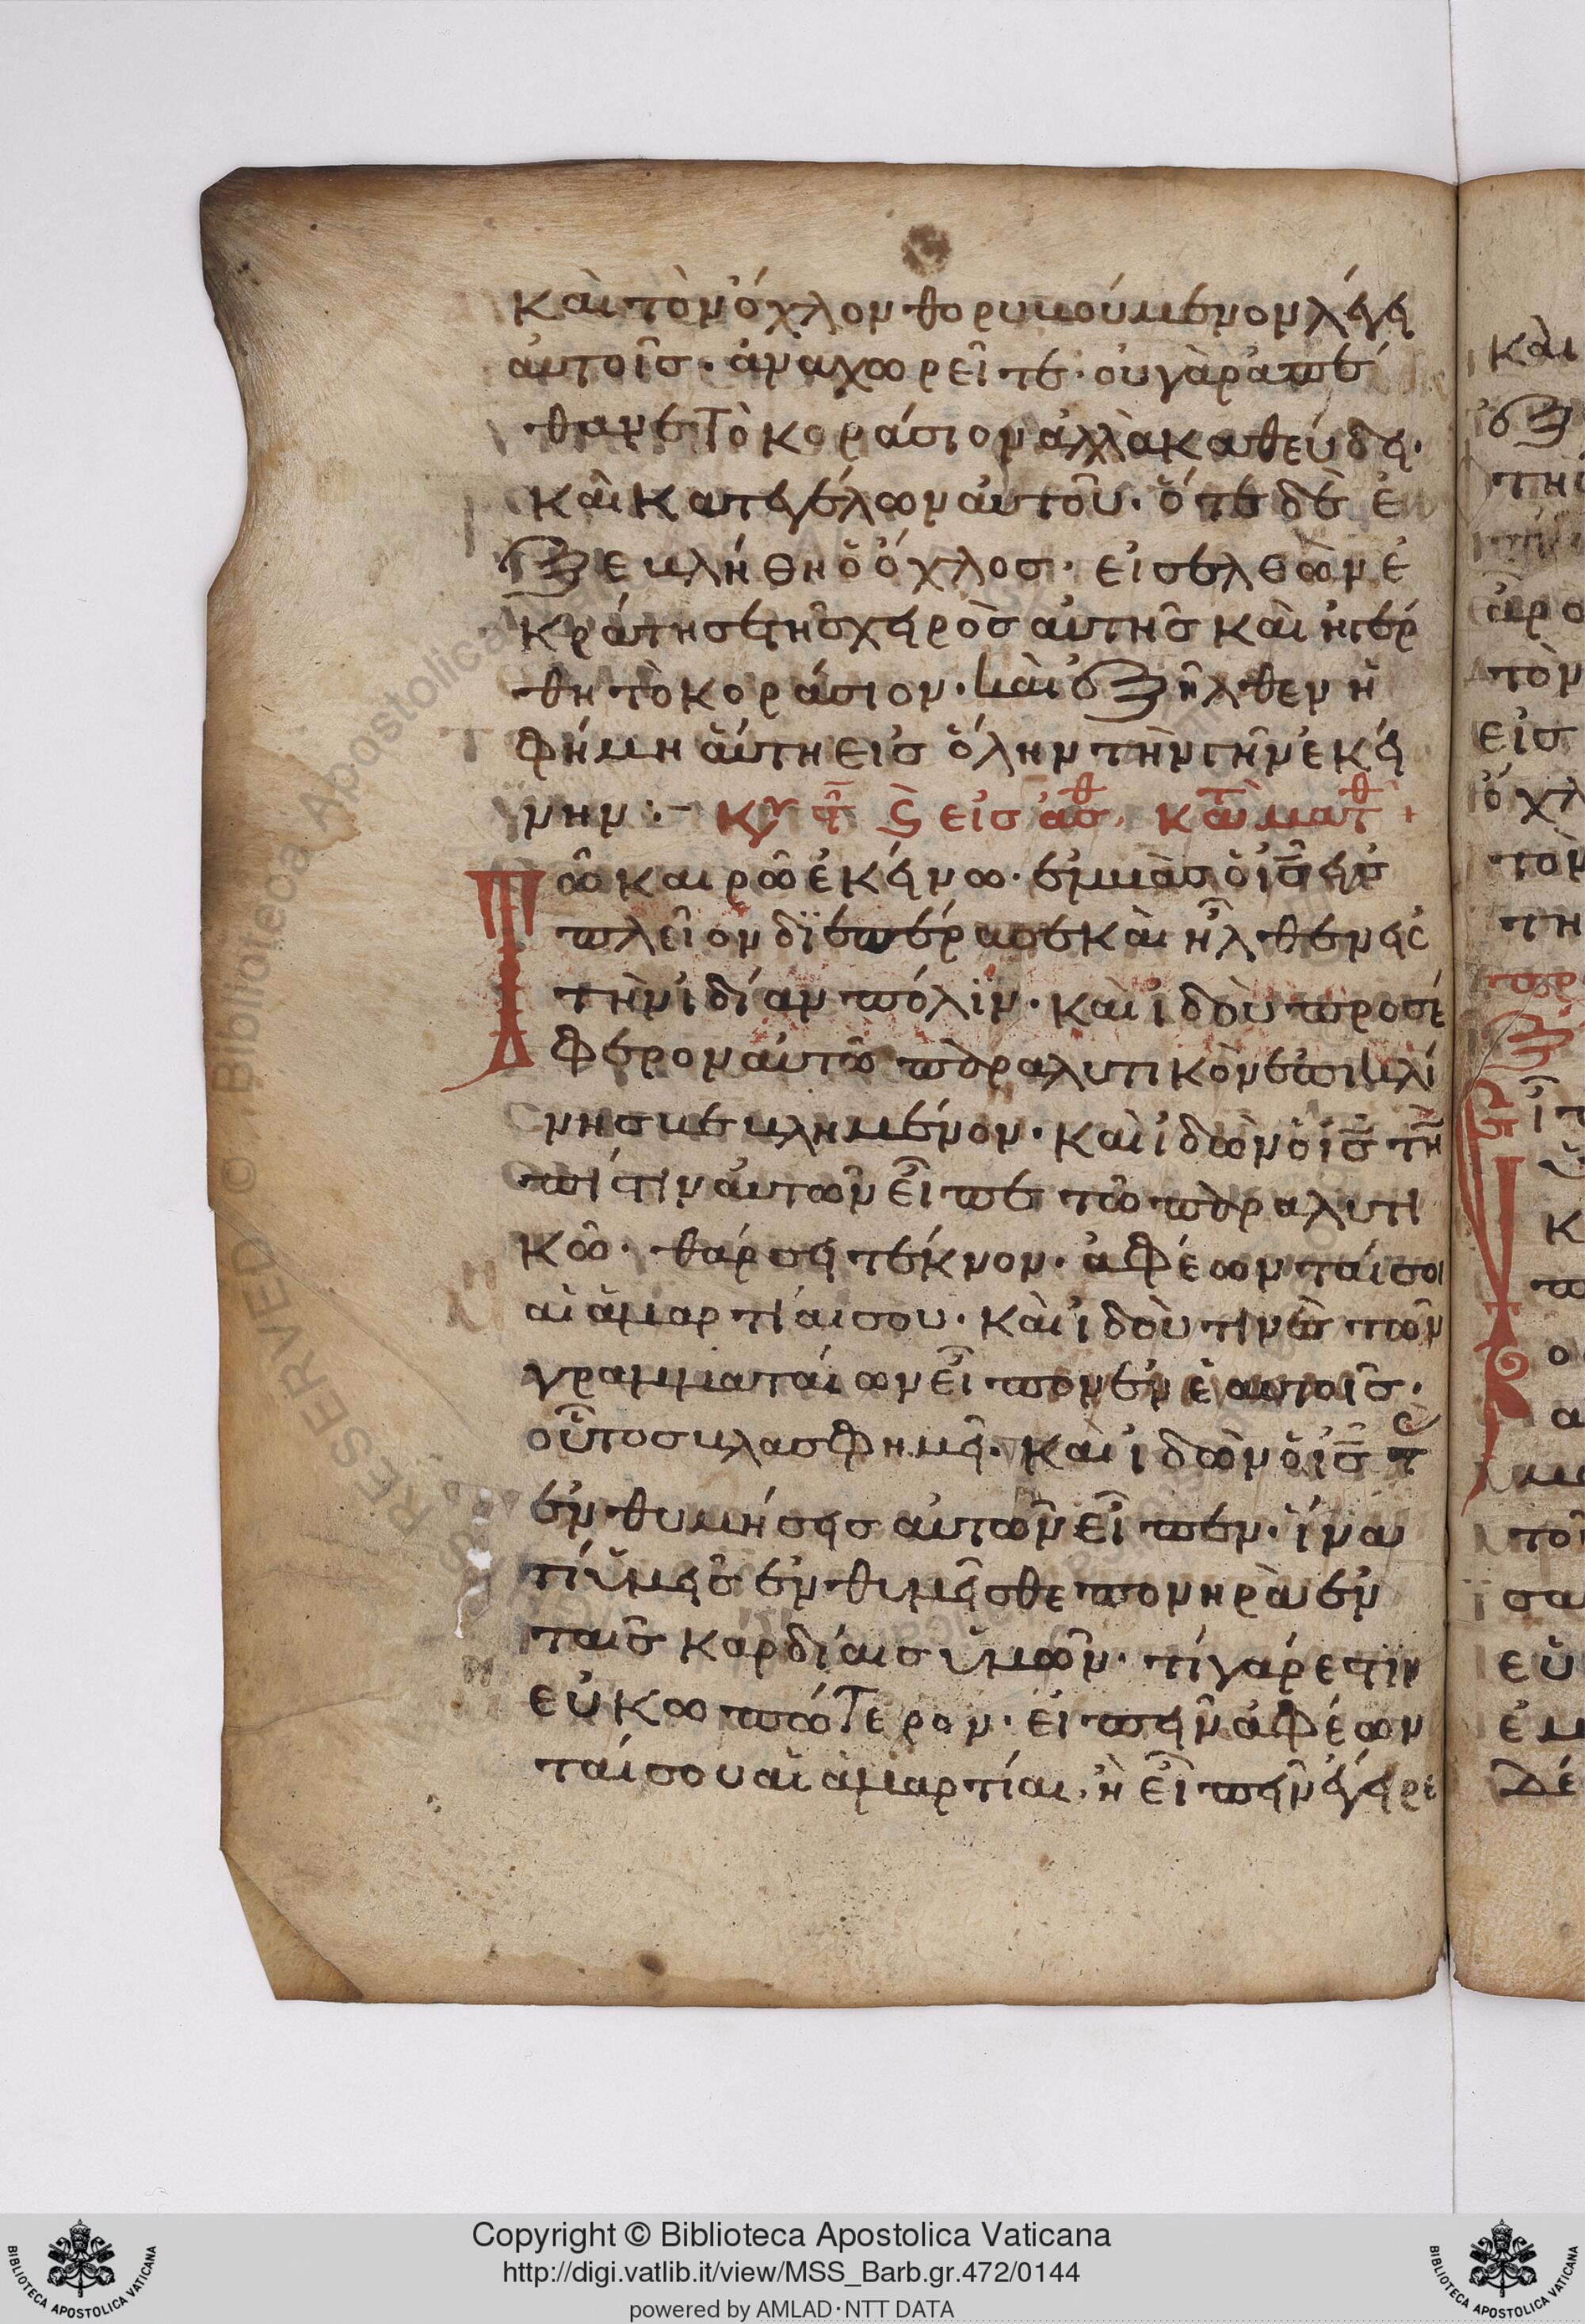 καὶ τὸν ὄχλον θορυβούμενον λέγει
αὐτοῖς· ἀναχωρεῖτε· οὐ γὰρ ἀπέ
θανε τὸ κοράσιον ἀλλὰ καθεύδει·
καὶ κατεγέλων αὐτοῦ· ὅτε δὲ ἐ
ξεβλήθη ὁ ὄχλος· εἰσελθὼν ἐ
κράτησε τῆς χειρὸς αὐτῆς καὶ ἠγέρ
θη τὸ κοράσιον· καὶ ἐξῆλθεν ἡ
φήμη αὕτη εἰς ὅλην τὴν γῆν ἐκεί
νην :–
Τῶ καιρῶ ἐκείνω· ἐμβὰς ὁ ις εἰς
πλεῖον διεπέρασε καὶ ἦλθεν εἰς
τὴν ἰδίαν πόλιν· καὶ ἰδοὺ προσέ
φερον αὐτῶ παραλυτικὸν ἐπὶ κλί
νης βεβλημένον· καὶ ἰδὼν ὁ ις τὴν
πίστιν αὐτῶν εἶπε τῶ παραλυτι
κῶ· θάρσει τέκνον· ἀφέωνταί σοι
αἱ ἁμαρτίαι σου· καὶ ἰδού τινὲς τῶν
γραμματαίων εἶπον ἐν ἑαυτοῖς·
οὗτος βλασφημεῖ· καὶ ἰδὼν ὁ ις τὰς
ἐνθυμήσεις αὐτῶν εἶπεν· ἵνα
τί ὑμεῖς ἐνθυμεῖσθε πονηρὰ ἐν
ταῖς καρδίαις ὑμῶν· τί γάρ ἐστιν
εὐκωπώτερον· εἰπεῖν ἀφέων
ταί σου αἱ ἁμαρτίαι, ἢ εἰπεῖν ἔγειρε
Copyright © Biblioteca Apostolica Vaticana
http://digi.vatlib.it/view/MSS_Barb.gr.472/0144
powered by AMLAD·NTT DATA